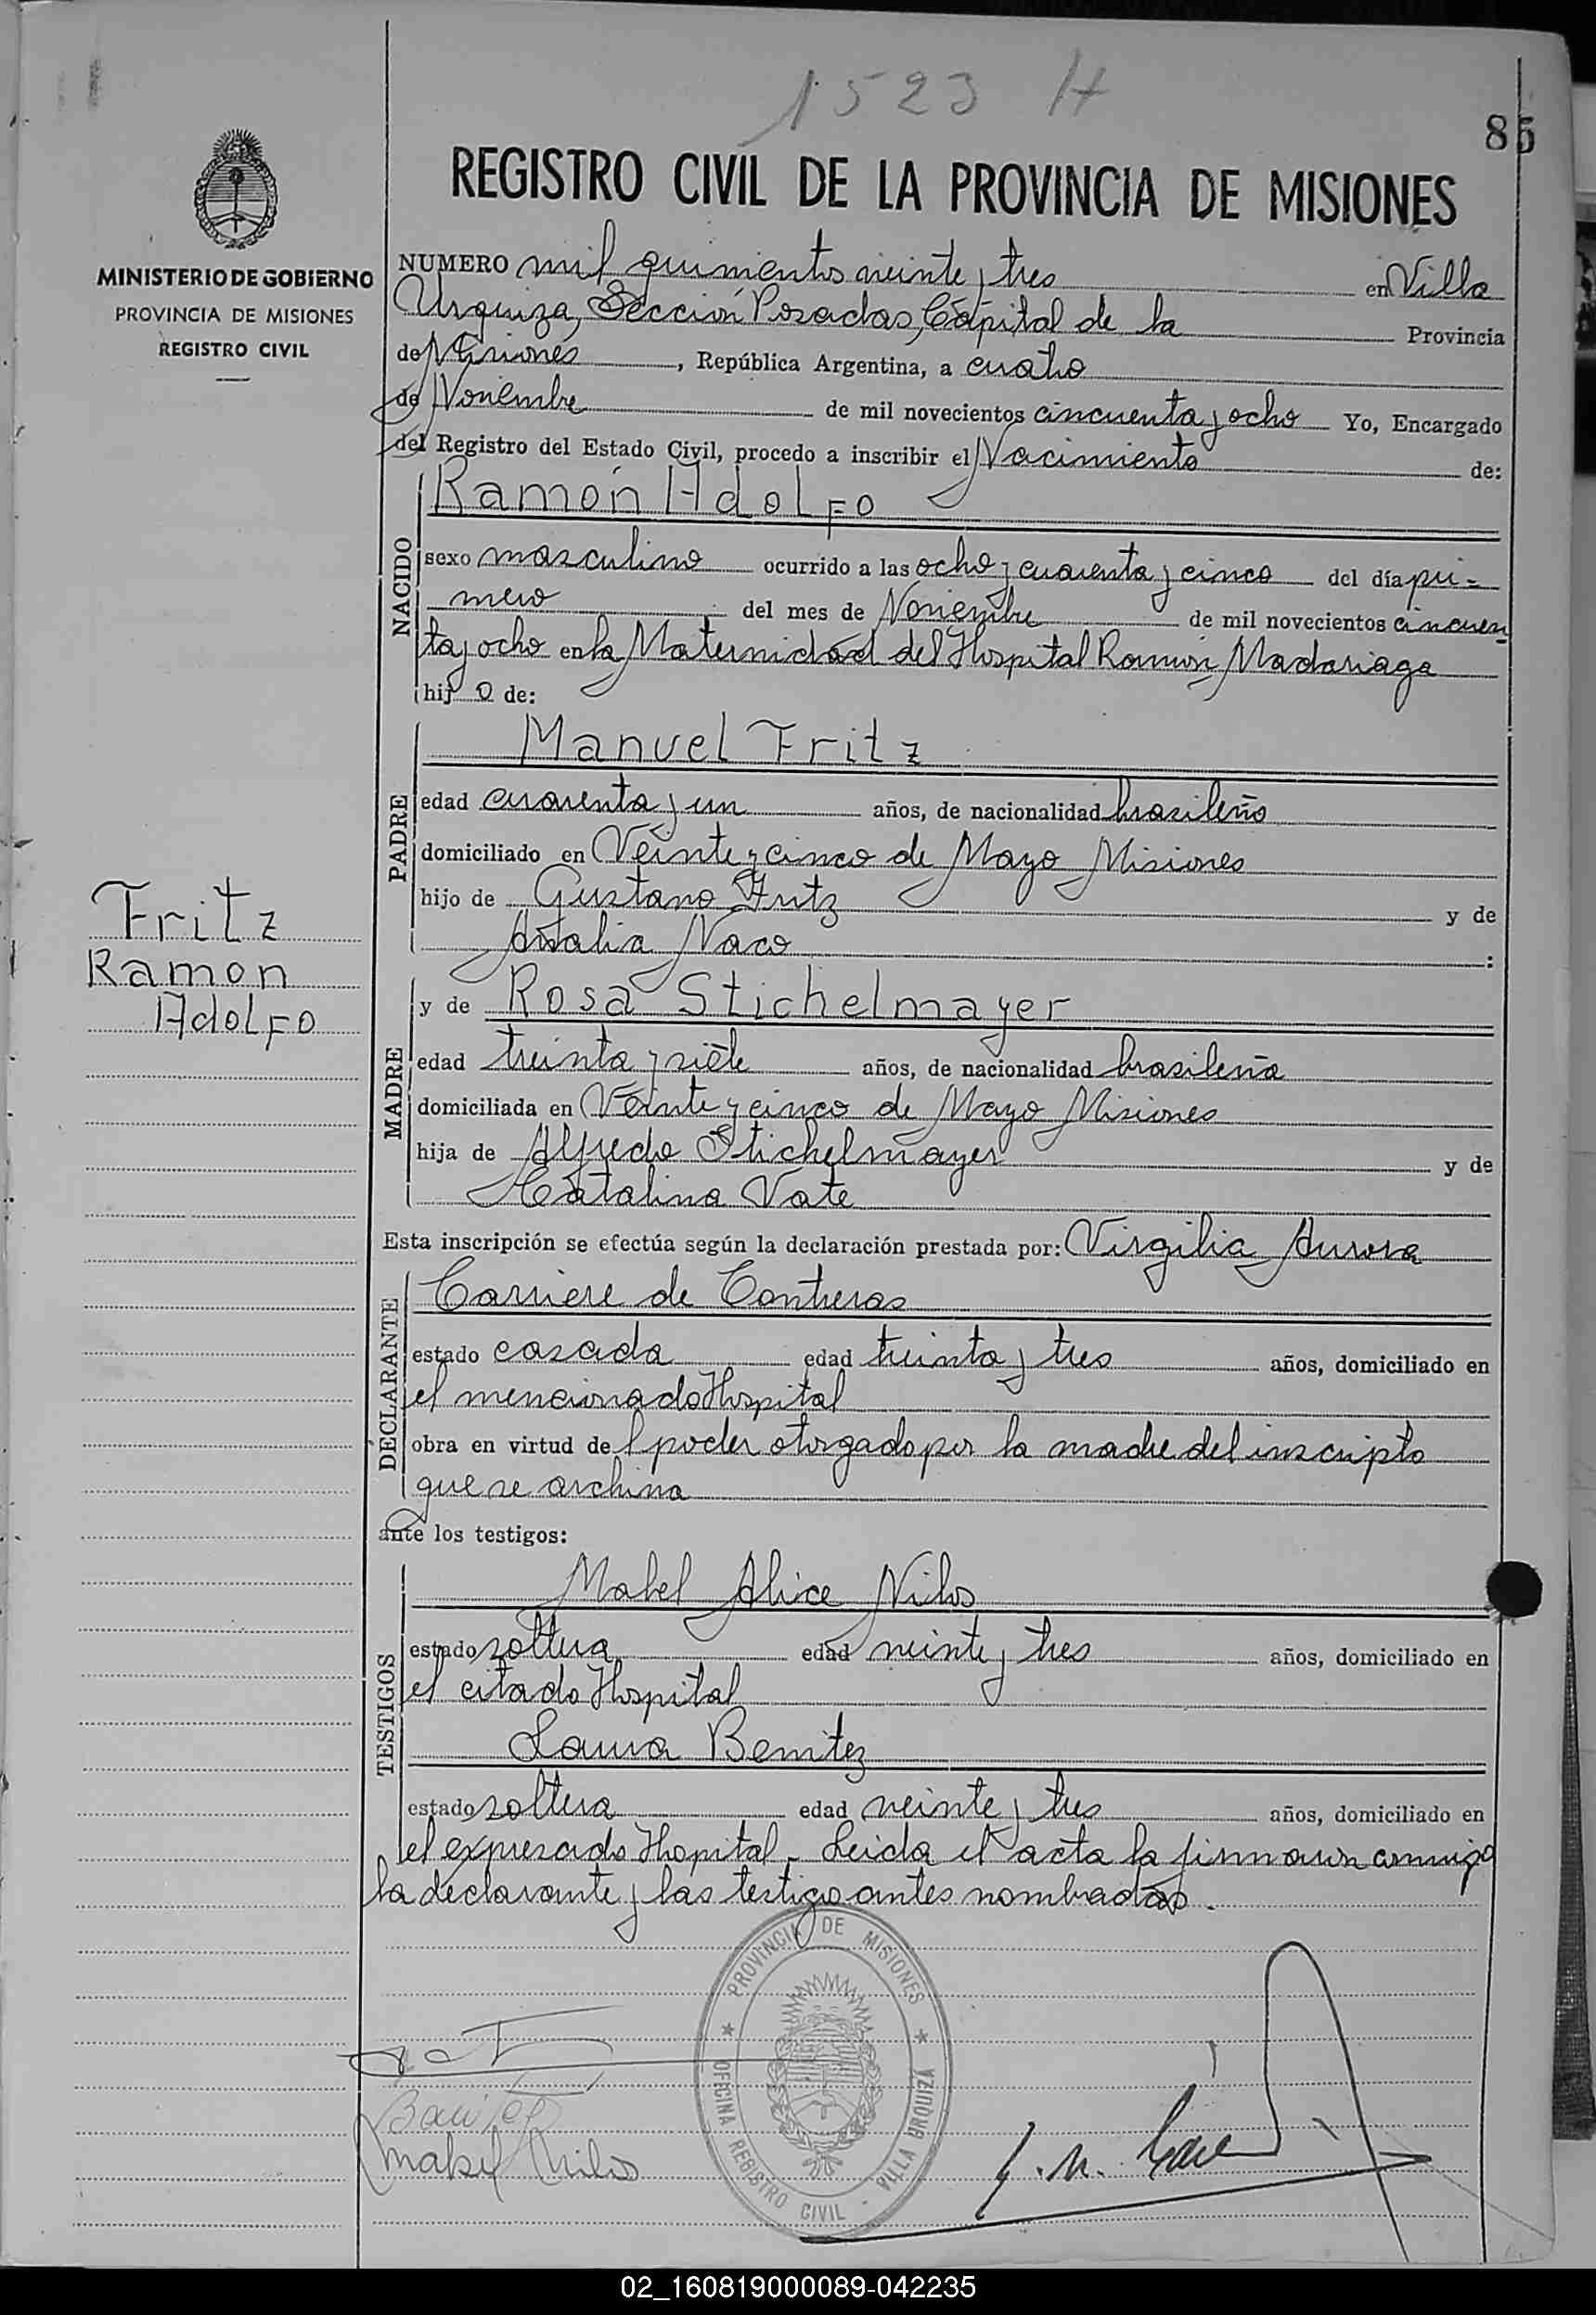 1523 H
85
REGISTRO CIVIL DE LA PROVINCIA DE MISIONES
MINISTERIO DE GOBIERNO
PROVINCIA DE MISIONES
REGISTRO CIVIL
NUMERO mil quinientos veinte y tres en Villa
Urquiza, Sección Posadas, Capital de la Provincia
de Misiones, República Argentina, a cuatro
de Noviembre de mil novecientos cincuenta y ocho Yo, Encargado
del Registro del Estado Civil, procedo a inscribir el Nacimiento de:
NACIDO
Ramón Adolfo
sexo masculino ocurrido a las ocho y cuarenta y cinco del día pri-
mero del mes de Noviembre de mil novecientos cincuen
ta y ocho en la Maternidad del Hospital Ramón Madariaga
hijo de:
PADRE
Manuel Fritz
edad cuarenta y un años, de nacionalidad brasileño
domiciliado en Veinte y cinco de Mayo Misiones
hijo de Gustavo Fritz y de
Natalia Naco :
Fritz
Ramon
Adolfo
MADRE
y de Rosa Stichelmayer
edad treinta y siete años, de nacionalidad brasileña
domiciliada en Veinte y cinco de Mayo Misiones
hija de Alfredo Stichelmayer y de
Catalina Vate
Esta inscripción se efectúa según la declaración prestada por: Virgilia Aurora
DECLARANTE
Carriere de Contreras
estado casada edad treinta y tres años, domiciliado en
el mencionado Hospital
obra en virtud del poder otorgado por la madre del inscripto
que se archiva
ante los testigos:
TESTIGOS
Mabel Alice Nilos
estado soltera edad veinte y tres años, domiciliado en
el citado Hospital
Laura Benitez
estado soltera edad veinte y tres años, domiciliado en
el expresado Hospital. Leida el acta la firmaron conmigo
la declarante y las testigo antes nombradas.
PROVINCIA DE MISIONES
OFICINA REGISTRO CIVIL - VILLA URQUIZA
Benitez
Mabel Nilos
02_160819000089-042235